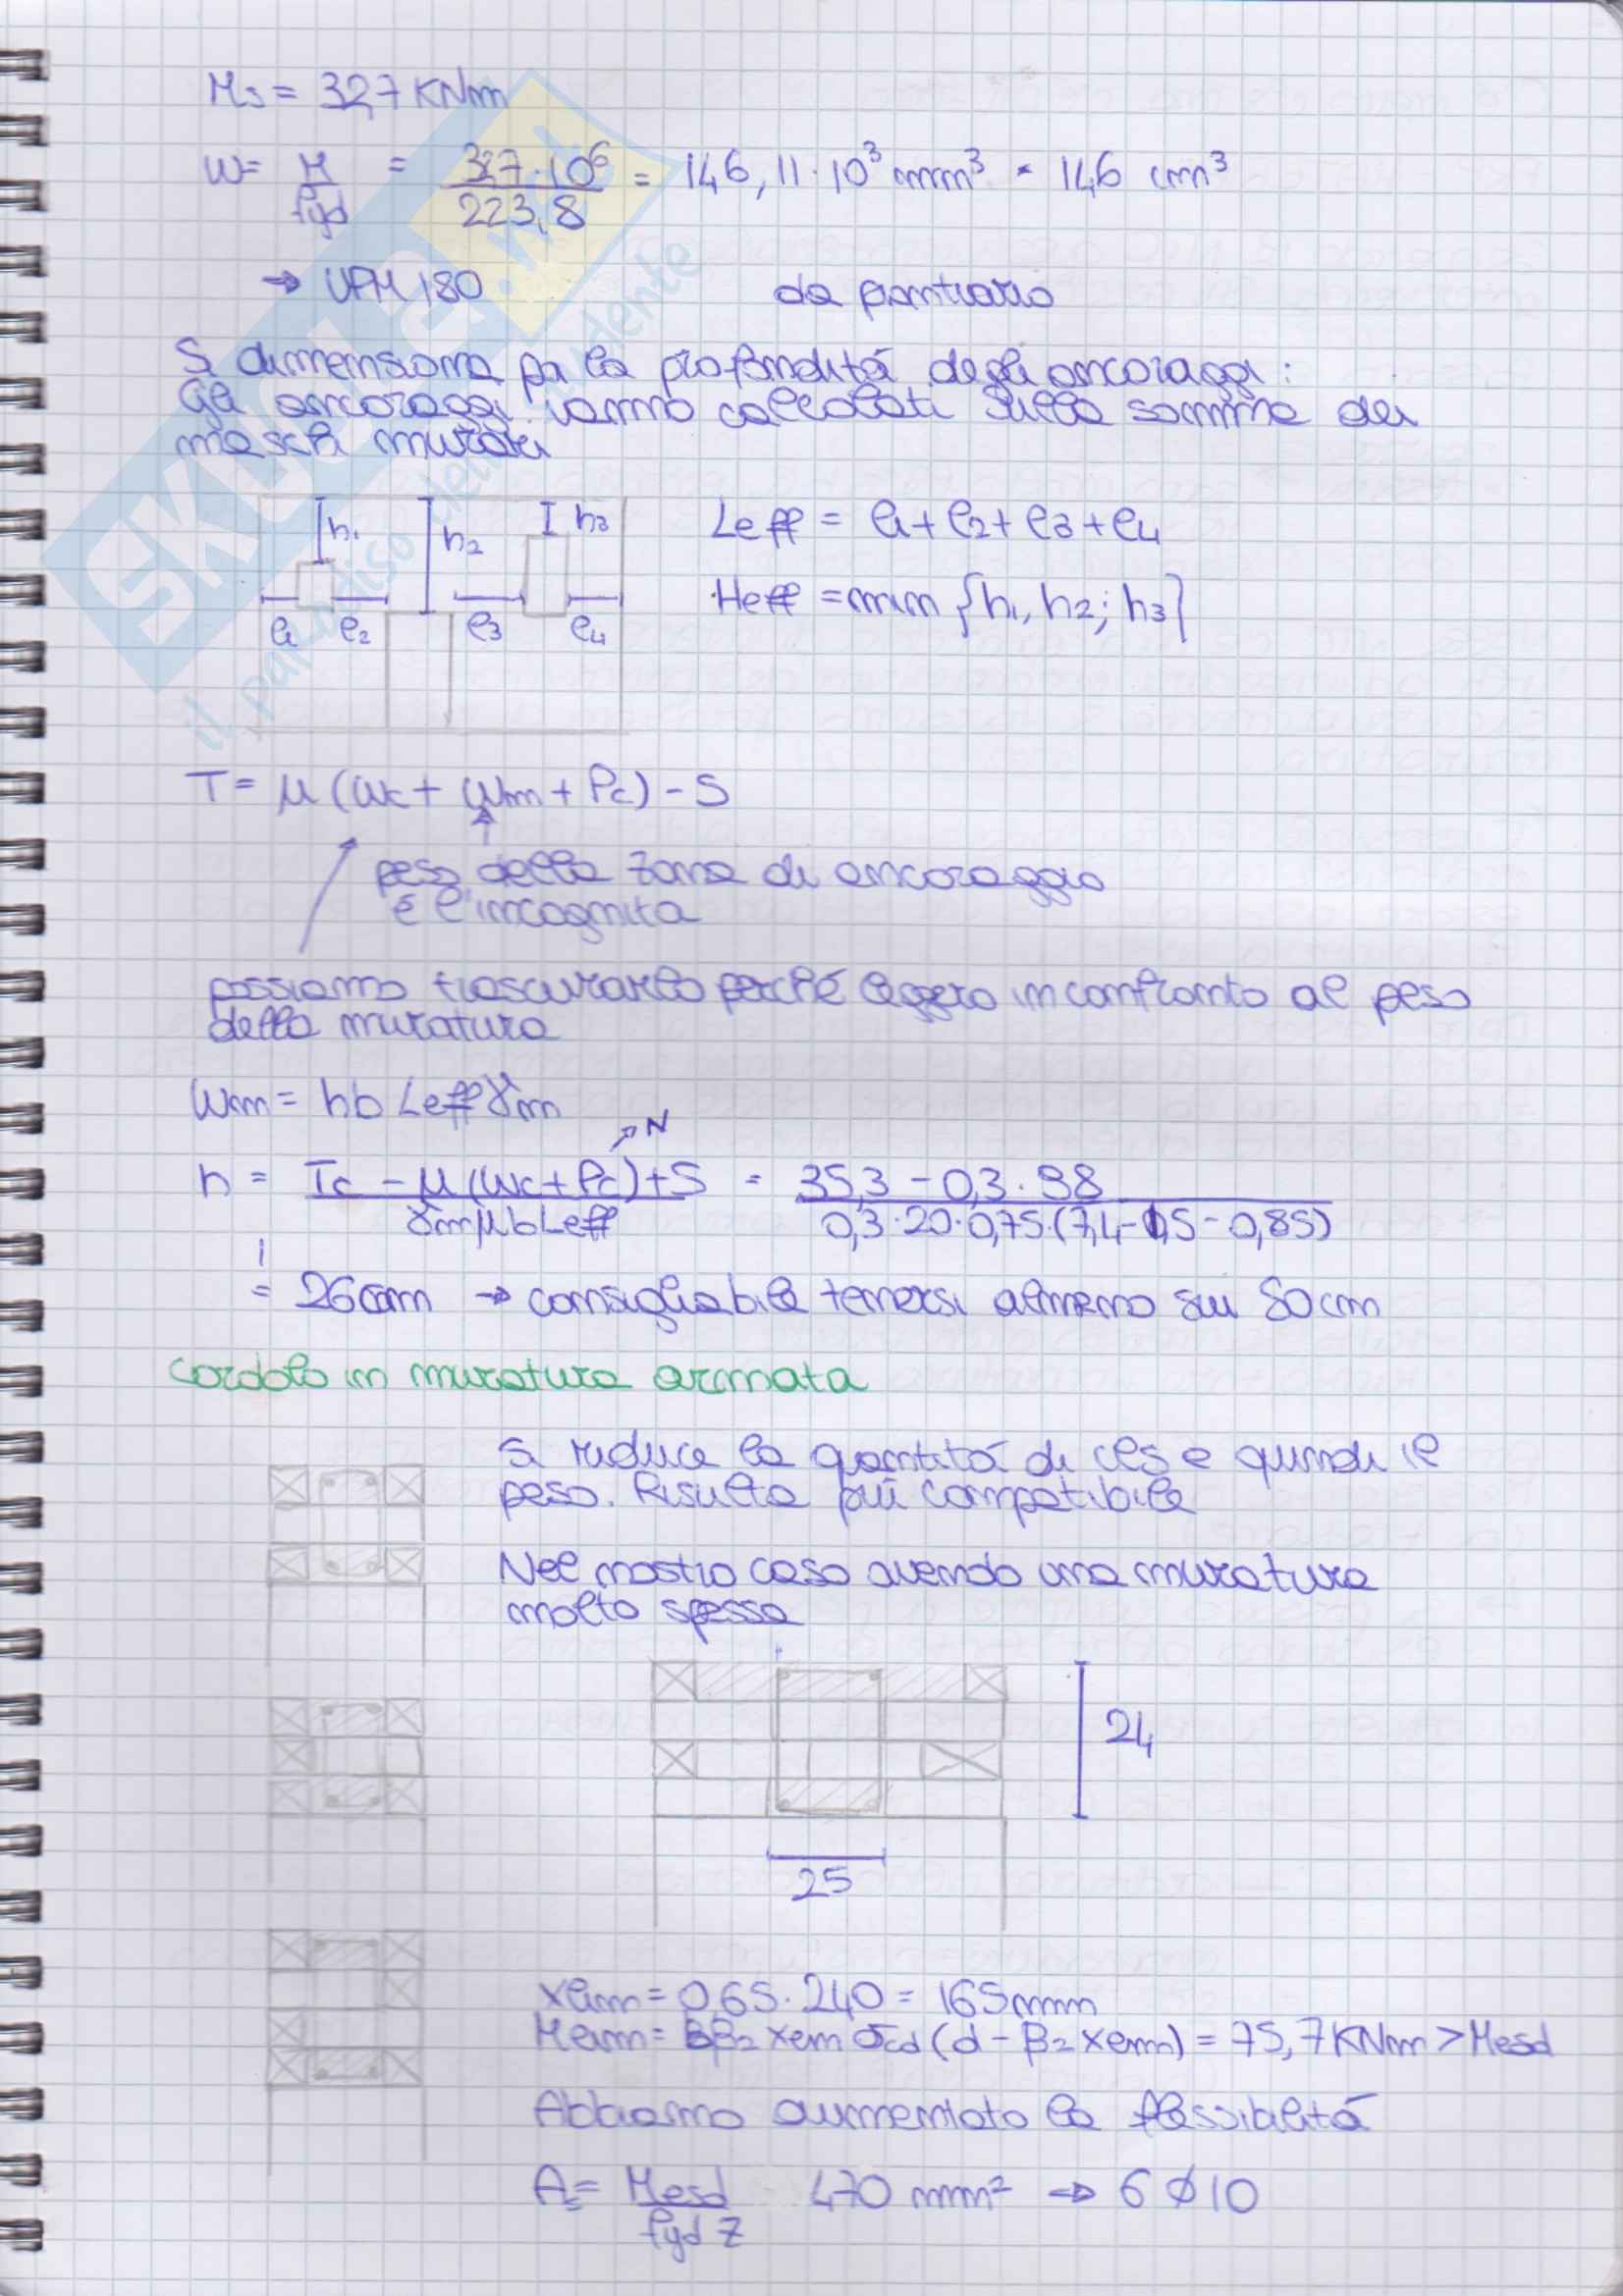 Ms = 32,7 KNm
W = M/fyd = 32,7·10⁶/223,8 = 146,11·10³ mm³ = 146 cm³
→ UPN 180 da prontuario
Si dimensiona poi la profondità degli ancoraggi:
Gli ancoraggi vanno calcolati sulla somma dei
maschi murari
h1 h2 h3
l1 l2 l3 l4
Leff = l1+l2+l3+l4
Heff = min {h1, h2; h3}
T = μ (Wc + Wm + Pc) - S
peso della zona di ancoraggio
è l'incognita
possiamo trascurarlo perché leggero in confronto al peso
della muratura
Wm = h b Leff γm
N
h = Tc - μ (Wc + Pc) + S / γm μ b Leff = 35,3 - 0,3·98 / 0,3·20·0,75·(7,4-1,5-0,85)
= 26cm → consigliabile tenersi almeno sui 80cm
Cordolo in muratura armata
Si riduce la quantità di cls e quindi il
peso. Risulta più compatibile
Nel nostro caso avendo una muratura
molto spessa
24
25
xlim = 0,65·240 = 165mm
Mlim = Bβ2 xlim σcd (d - β2 xlim) = 75,7 KNm > Mesd
Abbiamo aumentato la flessibilità
As = Mesd/fyd z 470 mm² → 6 Ø 10
SKUOLA.net
il paradiso dello studente